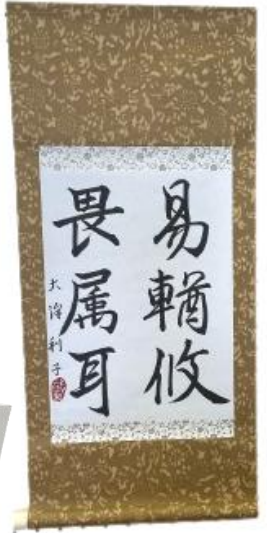 易輶攸
畏属耳
大澤利子